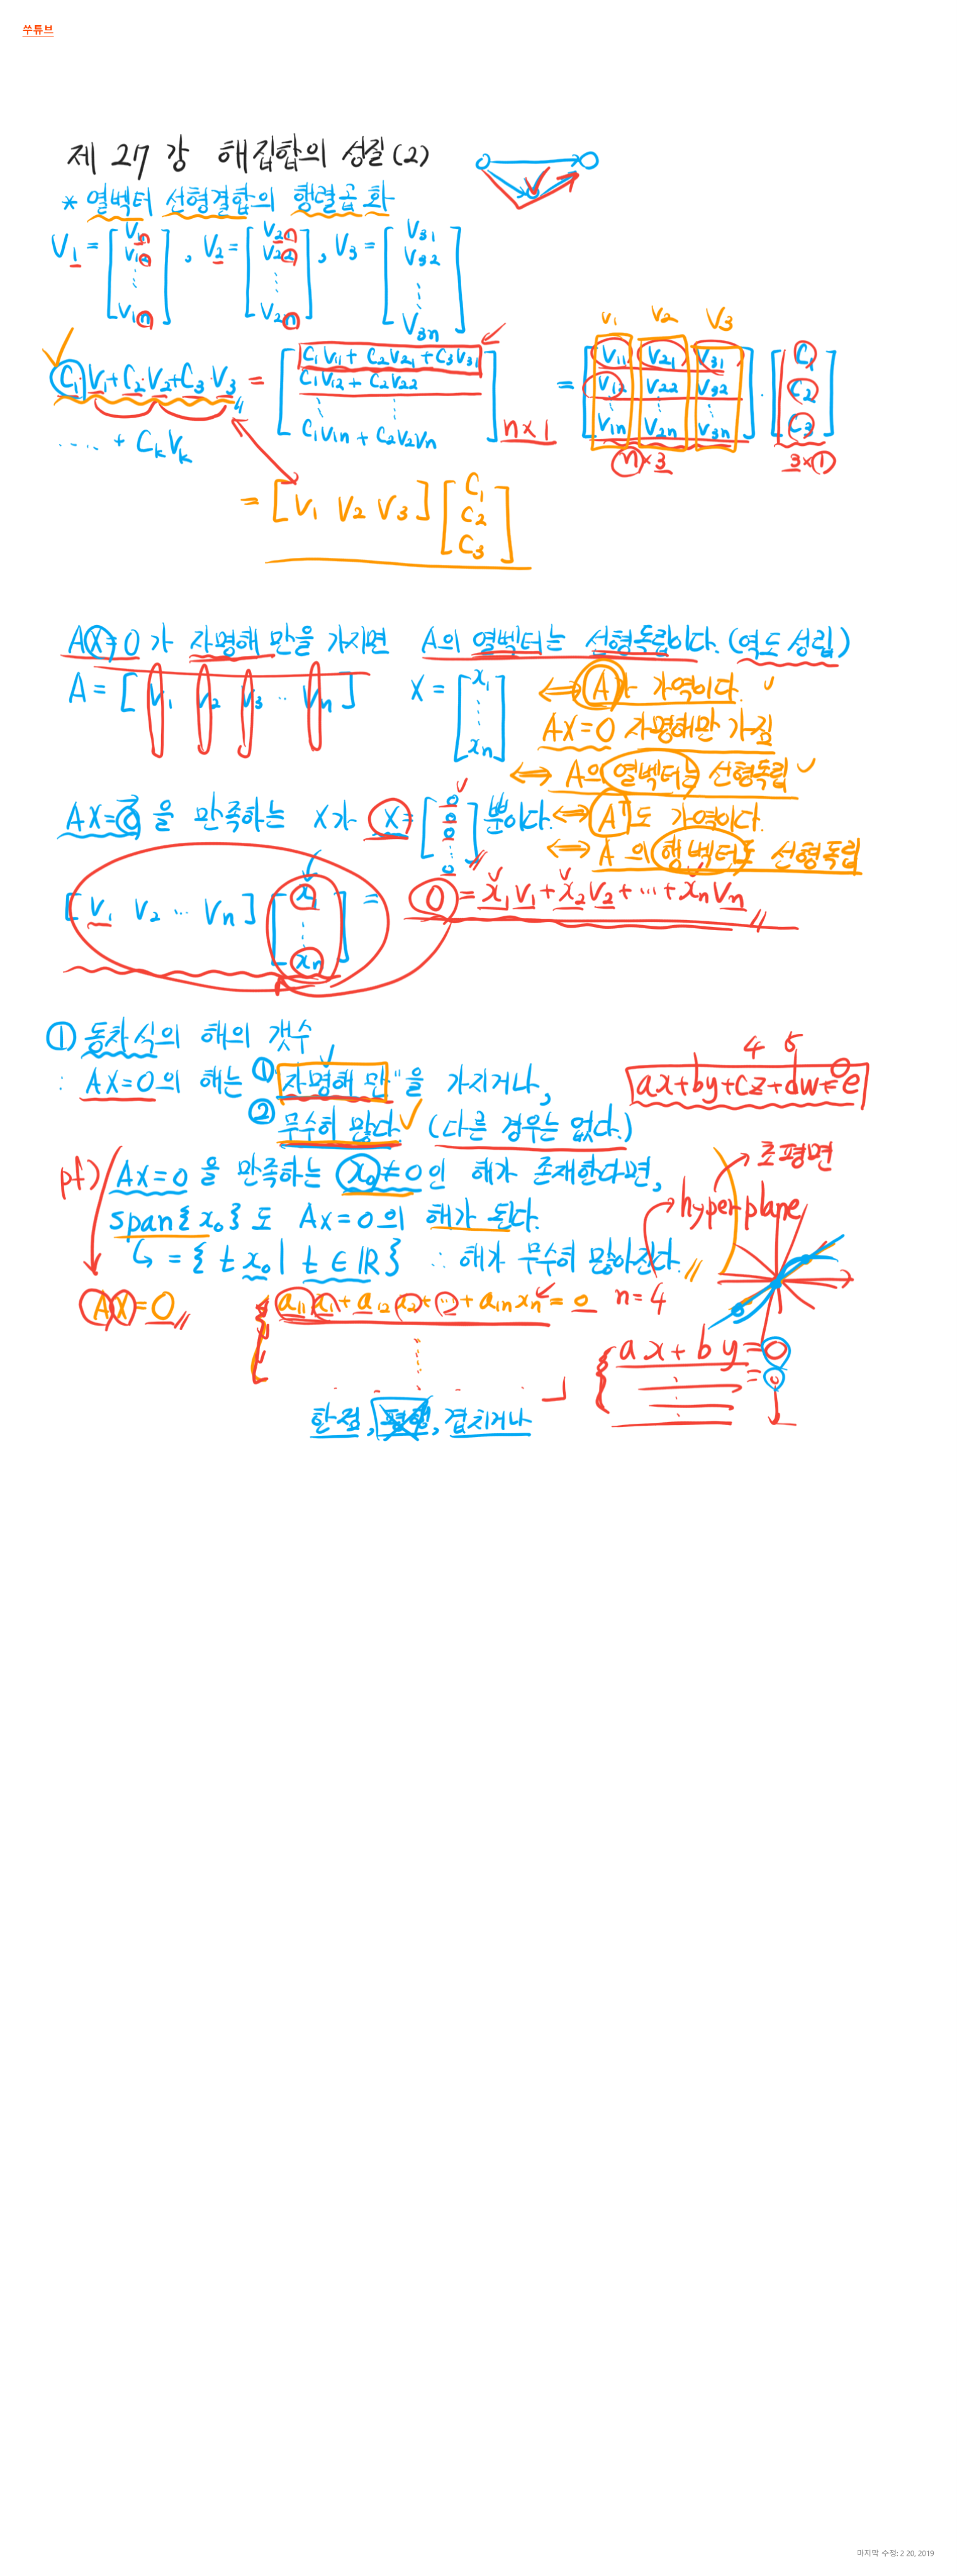 쑤튜브
제 27 강 해집합의 성질 (2)
* 열벡터 선형결합의 행렬곱 화
V1 = [ V11 V12 ⋮ V1n ] , V2 = [ V21 V22 ⋮ V2n ] , V3 = [ V31 V32 ⋮ V3n ]
C1·V1 + C2·V2 + C3·V3 = [ C1V11 + C2V21 + C3V31
C1V12 + C2V22
⋮ ⋮
C1V1n + C2V2Vn ] n×1
V1 V2 V3
= [ V11 V21 V31
V12 V22 V32
⋮ ⋮ ⋮
V1n V2n V3n ] · [ C1 C2 C3 ]
n×3 3×1
····· + CkVk
= [ V1 V2 V3 ] [ C1 C2 C3 ]
AX=0 가 자명해 만을 가지면 A의 열벡터는 선형독립이다. (역도 성립)
A = [ V1 V2 V3 ·· Vn ] X = [ x1 ⋮ xn ]
⇔ A가 가역이다.
AX=0 자명해만 가짐
⇔ A의 열벡터는 선형독립
AX=0 을 만족하는 X가 X= [ 0 0 0 ⋮ 0 ] 뿐이다.
⇔ Aᵀ도 가역이다.
⇔ A의 행벡터도 선형독립
[ V1 V2 ··· Vn ] [ x1 ⋮ xn ] = 0 = x1V1 + x2V2 + ··· + xnVn
① 동차식의 해의 갯수
: AX=0의 해는 ① "자명해 만"을 가지거나,
② 무수히 많다. (다른 경우는 없다.)
4 5
ax+by+cz+dw=e 0
pf) AX=0 을 만족하는 x0≠0인 해가 존재한다면,
span{x0} 도 AX=0의 해가 된다.
↳ = { t x0 | t ∈ ℝ } ∴ 해가 무수히 많아진다.
초평면
hyperplane
AX=0
a11x1 + a12x2 + ··· + a1nxn = 0 n=4
ax+by=0
=0
한점, 평행, 겹치거나
마지막 수정: 2 20, 2019